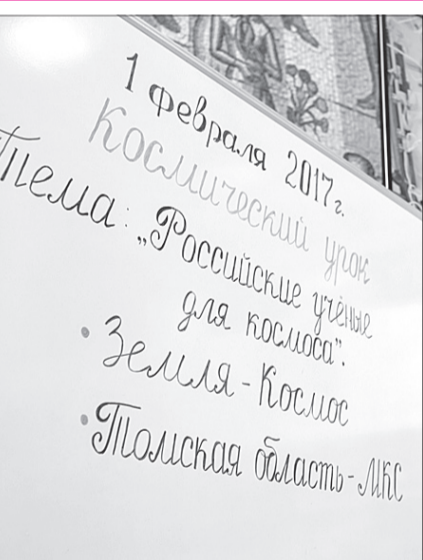 1 февраля 2017г.
Космический урок
Тема: „Российские учёные
для космоса".
• Земля - Космос
• Томская область - МКС